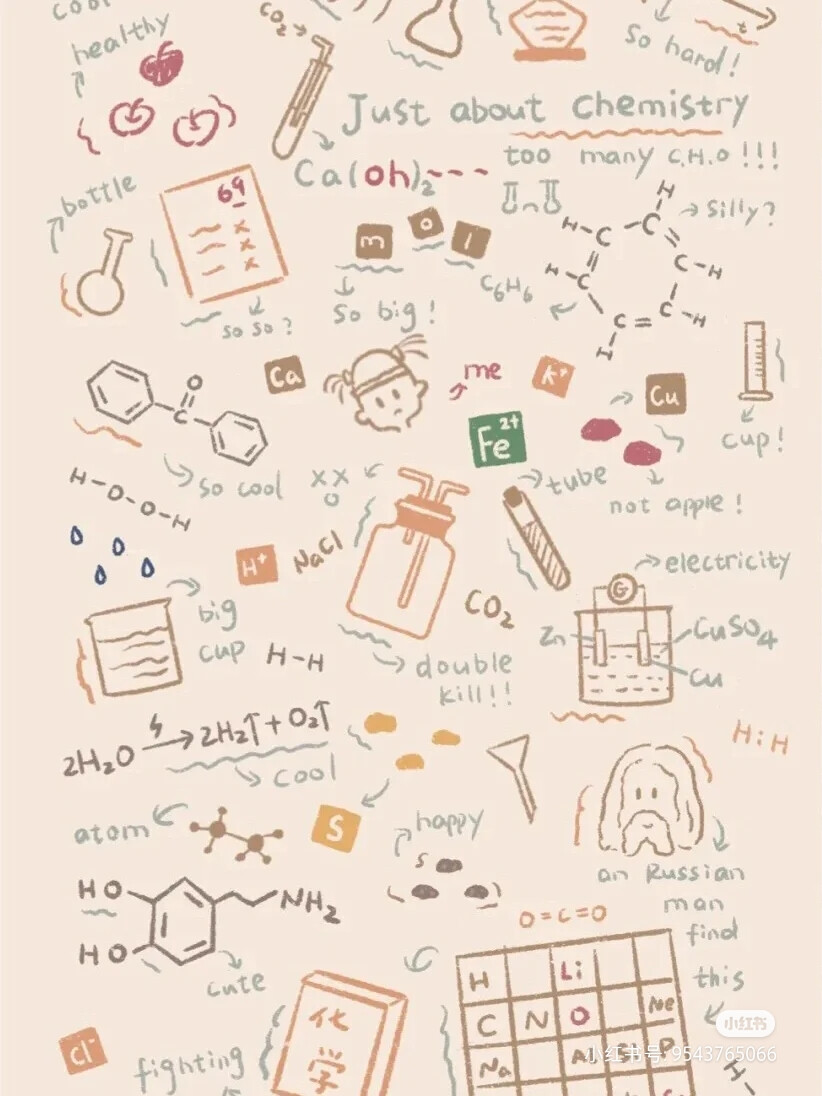 cool
healthy
CO₂
t
so hard!
Just about chemistry
too many C.H.O !!!
Ca(oh)₂---
bottle
69
x
x
x
so so?
m o l
so big!
C₆H₆
H
H-C C C-H
H-C C-H
C=C-H
H
silly?
Ca
me
K⁺
Cu
cup!
O
C
so cool
Fe²⁺
not apple!
tube
H-O-O-H
xx
o
H⁺
NaCl
CO₂
electricity
G
Zn
CuSO₄
Cu
big
cup
H-H
double
kill!!
2H₂O → 2H₂↑ + O₂↑
cool
H:H
atom
S
happy
s
an Russian
man
find
this
HO
HO
NH₂
cute
O=C=O
H Li
C N O Ne
Na
化
学
Cl⁻
fighting
小红书
小红书号 9543765066
H-